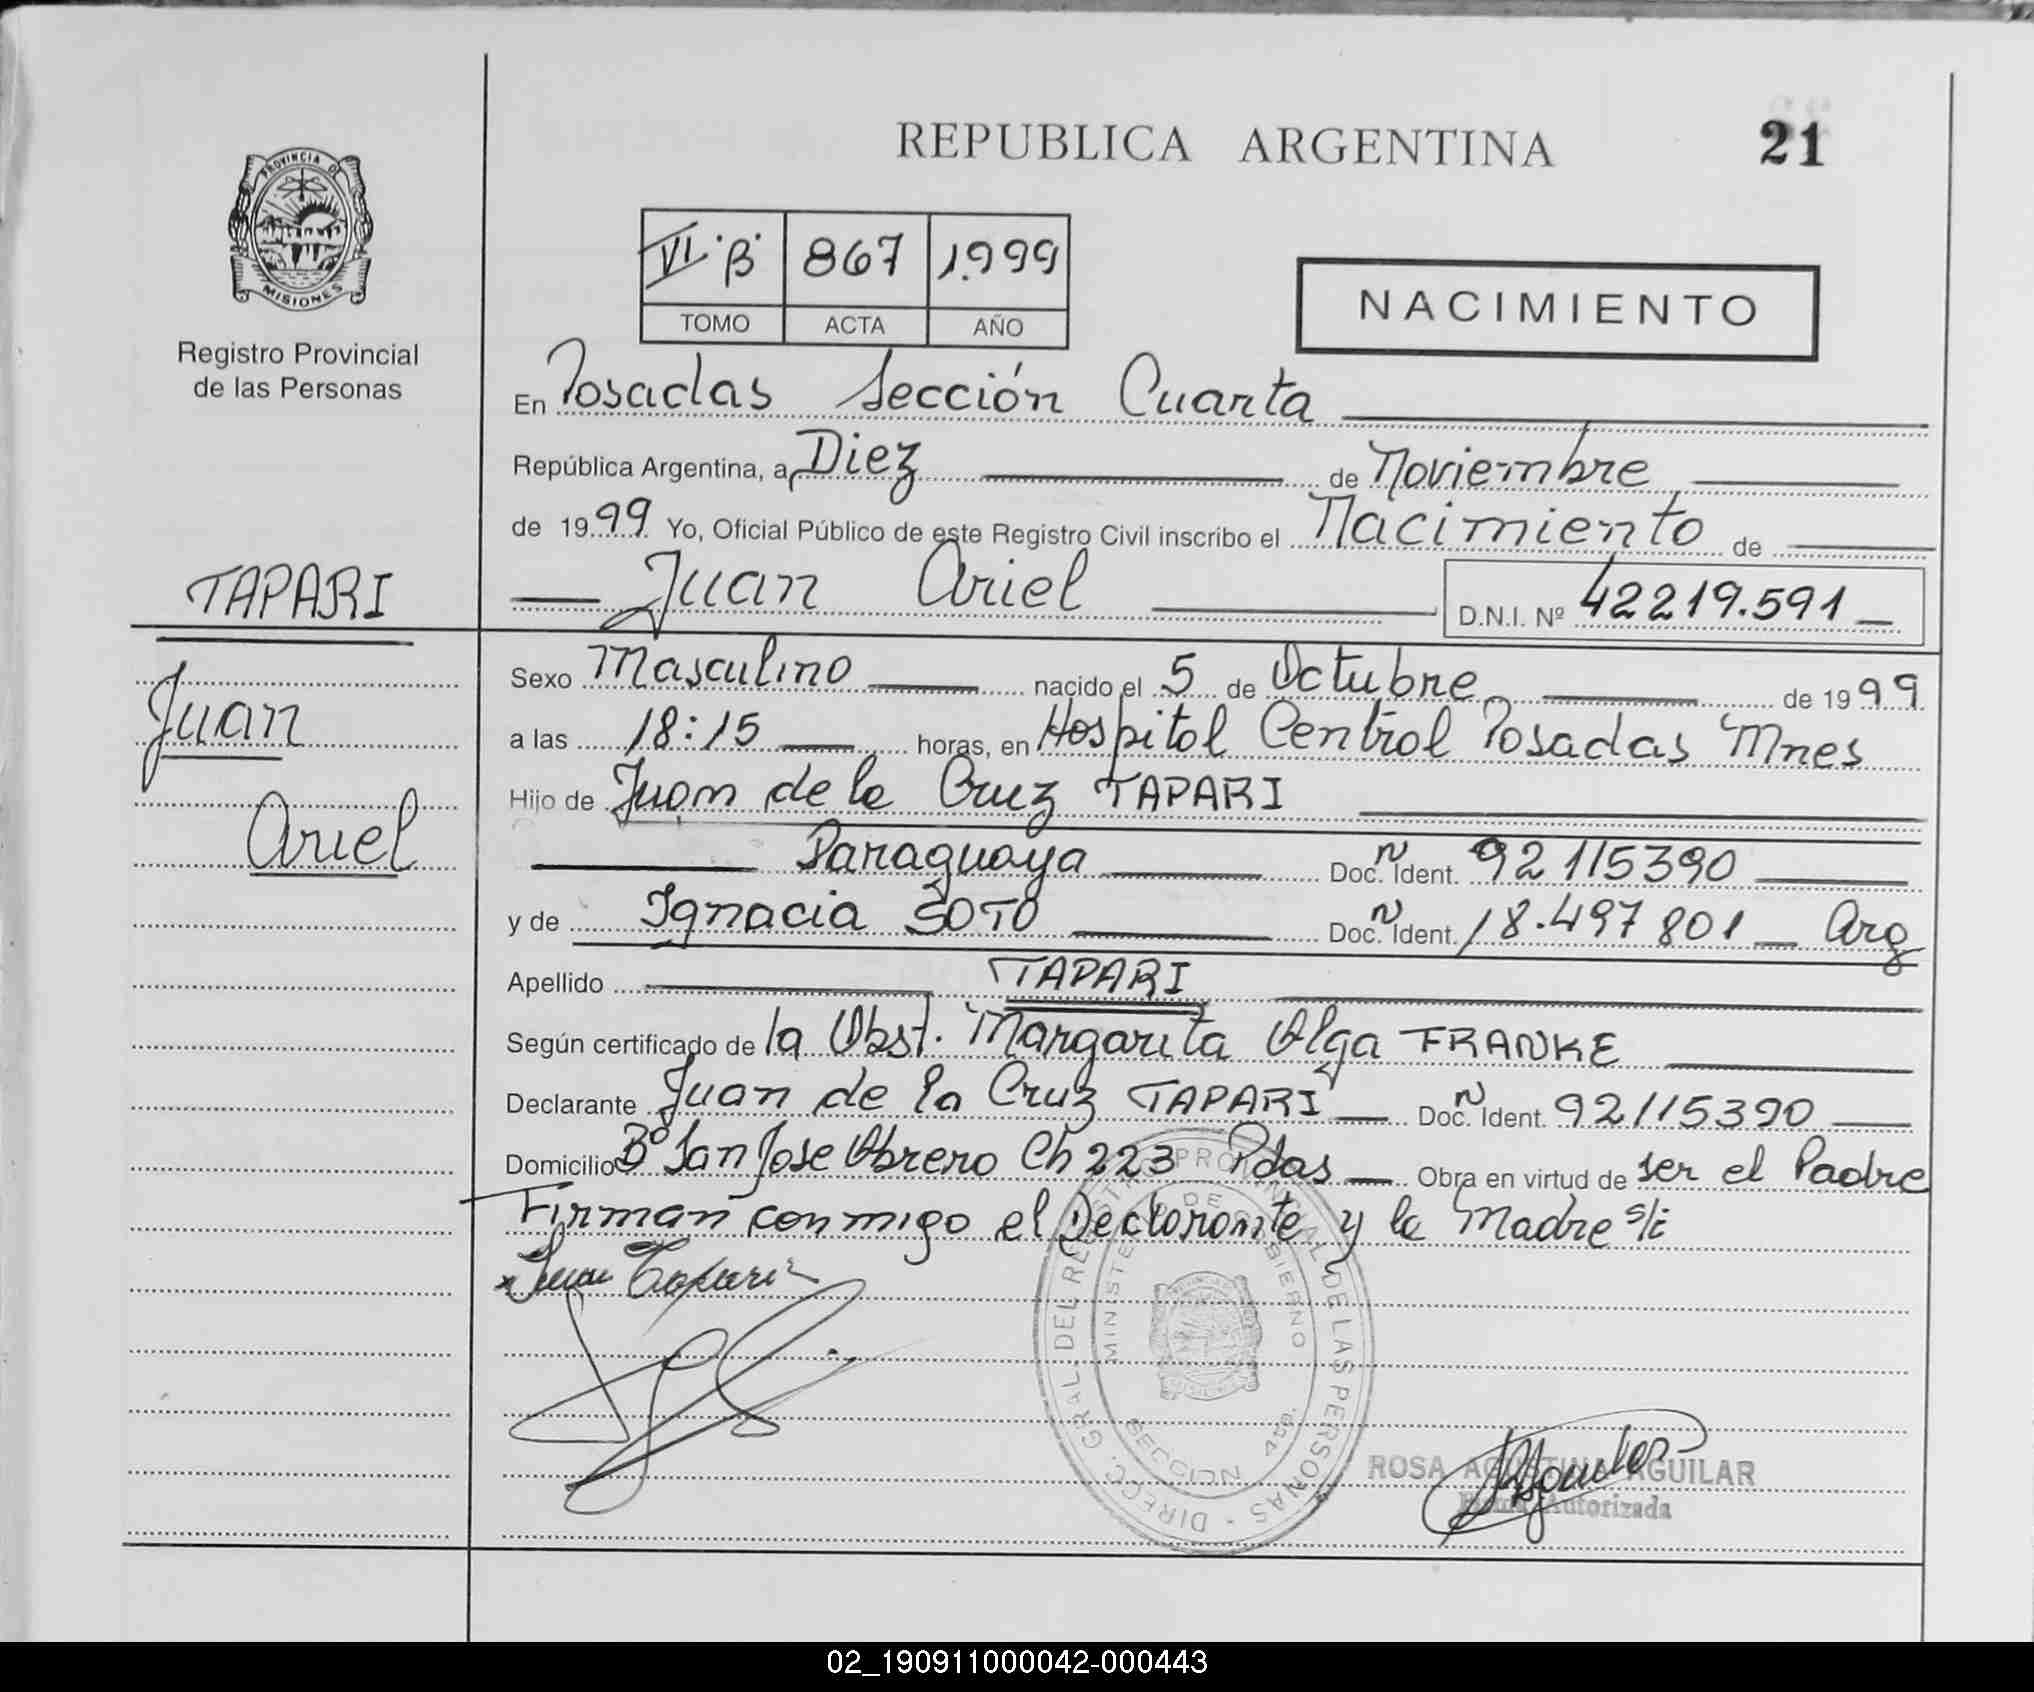 REPUBLICA ARGENTINA
21
PROVINCIA DE
MISIONES
Registro Provincial
de las Personas
VI·B· 867 1.999
TOMO ACTA AÑO
NACIMIENTO
En Posadas Sección Cuarta
República Argentina, a Diez de Noviembre
de 19 99 Yo, Oficial Público de este Registro Civil inscribo el Nacimiento de
Juan Ariel D.N.I. Nº 42219.591
TAPARI
Juan
Ariel
Sexo Masculino nacido el 5 de Octubre de 19 99
a las 18:15 horas, en Hospital Central Posadas Mnes
Hijo de Juan de la Cruz TAPARI
Paraguaya Doc. N Ident. 92115390
y de Ignacia SOTO Doc. N Ident. 18.497801 Arg
Apellido TAPARI
Según certificado de la Obst. Margarita Olga FRANKE
Declarante Juan de la Cruz TAPARI Doc. N Ident. 92115390
Domicilio Bº San Jose Obrero Ch 223 Pdas Obra en virtud de ser el Padre
Firman conmigo el Declarante y la Madre s/i
Juan Tapari
DIRECC. GRAL. DEL REGISTRO PROVINCIAL DE LAS PERSONAS
MINISTERIO DE GOBIERNO
SECCION 4ta.
ROSA AGUSTINA AGUILAR
Firma Autorizada
02_190911000042-000443